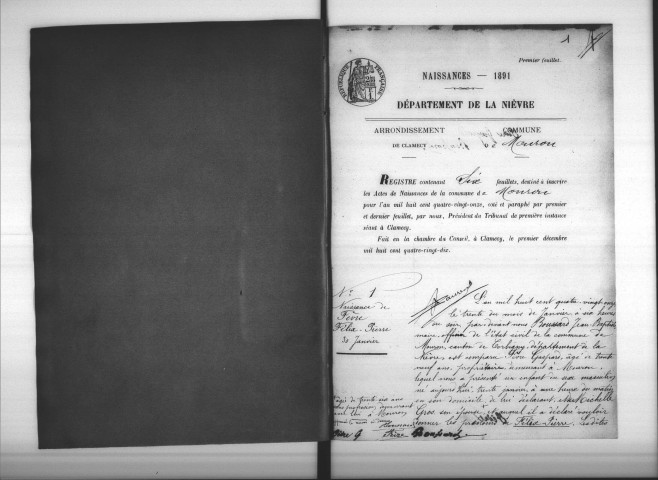 1
Premier feuillet.
RÉPUBLIQUE FRANÇAISE
NAISSANCES — 1891
DÉPARTEMENT DE LA NIÈVRE
ARRONDISSEMENT
DE CLAMECY
COMMUNE
de Mouron
REGISTRE contenant Six feuillets, destiné à inscrire
les Actes de Naissances de la commune de Mouron
pour l'an mil huit cent quatre-vingt-onze, coté et paraphé par premier
et dernier feuillet, par nous, Président du Tribunal de première instance
séant à Clamecy.
Fait en la chambre du Conseil, à Clamecy, le premier décembre
mil huit cent quatre-vingt-dix.
N° 1
Naissance de
Fèvre
Félix-Pierre
30 Janvier
L'an mil huit cent quatre-vingt-onze
le trente du mois de Janvier, à six heures
du soir, par-devant nous Boussard Jean Baptiste
maire, officier de l'état civil de la commune de
Mouron, canton de Corbigny, département de la
Nièvre, est comparu Fèvre Gaspard, âgé de trente
neuf ans, propriétaire demeurant à Mouron,
lequel nous a présenté un enfant du sexe masculin
né aujourd'hui, trente janvier, à une heure du matin
en son domicile de lui déclarant, et de Michelle
Gros son épouse et auquel il a déclaré vouloir
donner les prénoms de Félix-Pierre.
âgé de trente six ans